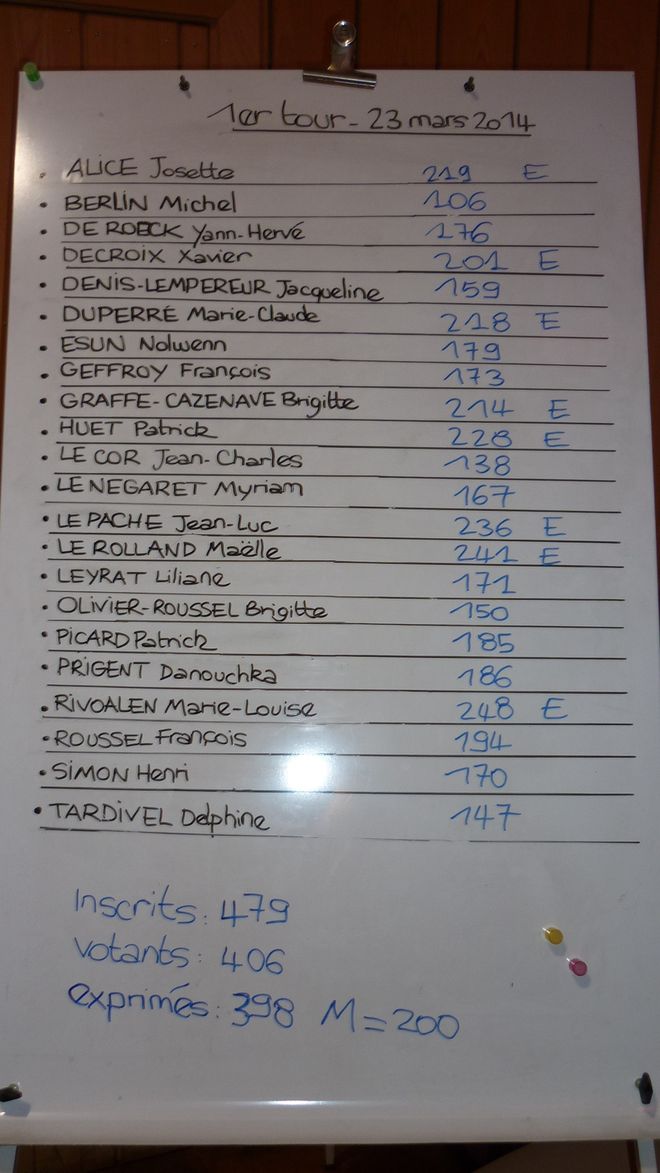 1er tour - 23 mars 2014
• ALICE Josette 219 E
• BERLIN Michel 106
• DE ROECK Yann-Hervé 176
• DECROIX Xavier 201 E
• DENIS-LEMPEREUR Jacqueline 159
• DUPERRÉ Marie-Claude 218 E
• ESUN Nolwenn 179
• GEFFROY François 173
• GRAFFE-CAZENAVE Brigitte 214 E
• HUET Patrick 228 E
• LE COR Jean-Charles 138
• LE NEGARET Myriam 167
• LE PACHE Jean-Luc 236 E
• LE ROLLAND Maëlle 241 E
• LEYRAT Liliane 171
• OLIVIER-ROUSSEL Brigitte 150
• PICARD Patrick 185
• PRIGENT Danouchka 186
• RIVOALEN Marie-Louise 248 E
• ROUSSEL François 194
• SIMON Henri 170
• TARDIVEL Delphine 147
Inscrits : 479
votants : 406
exprimés : 398 M = 200